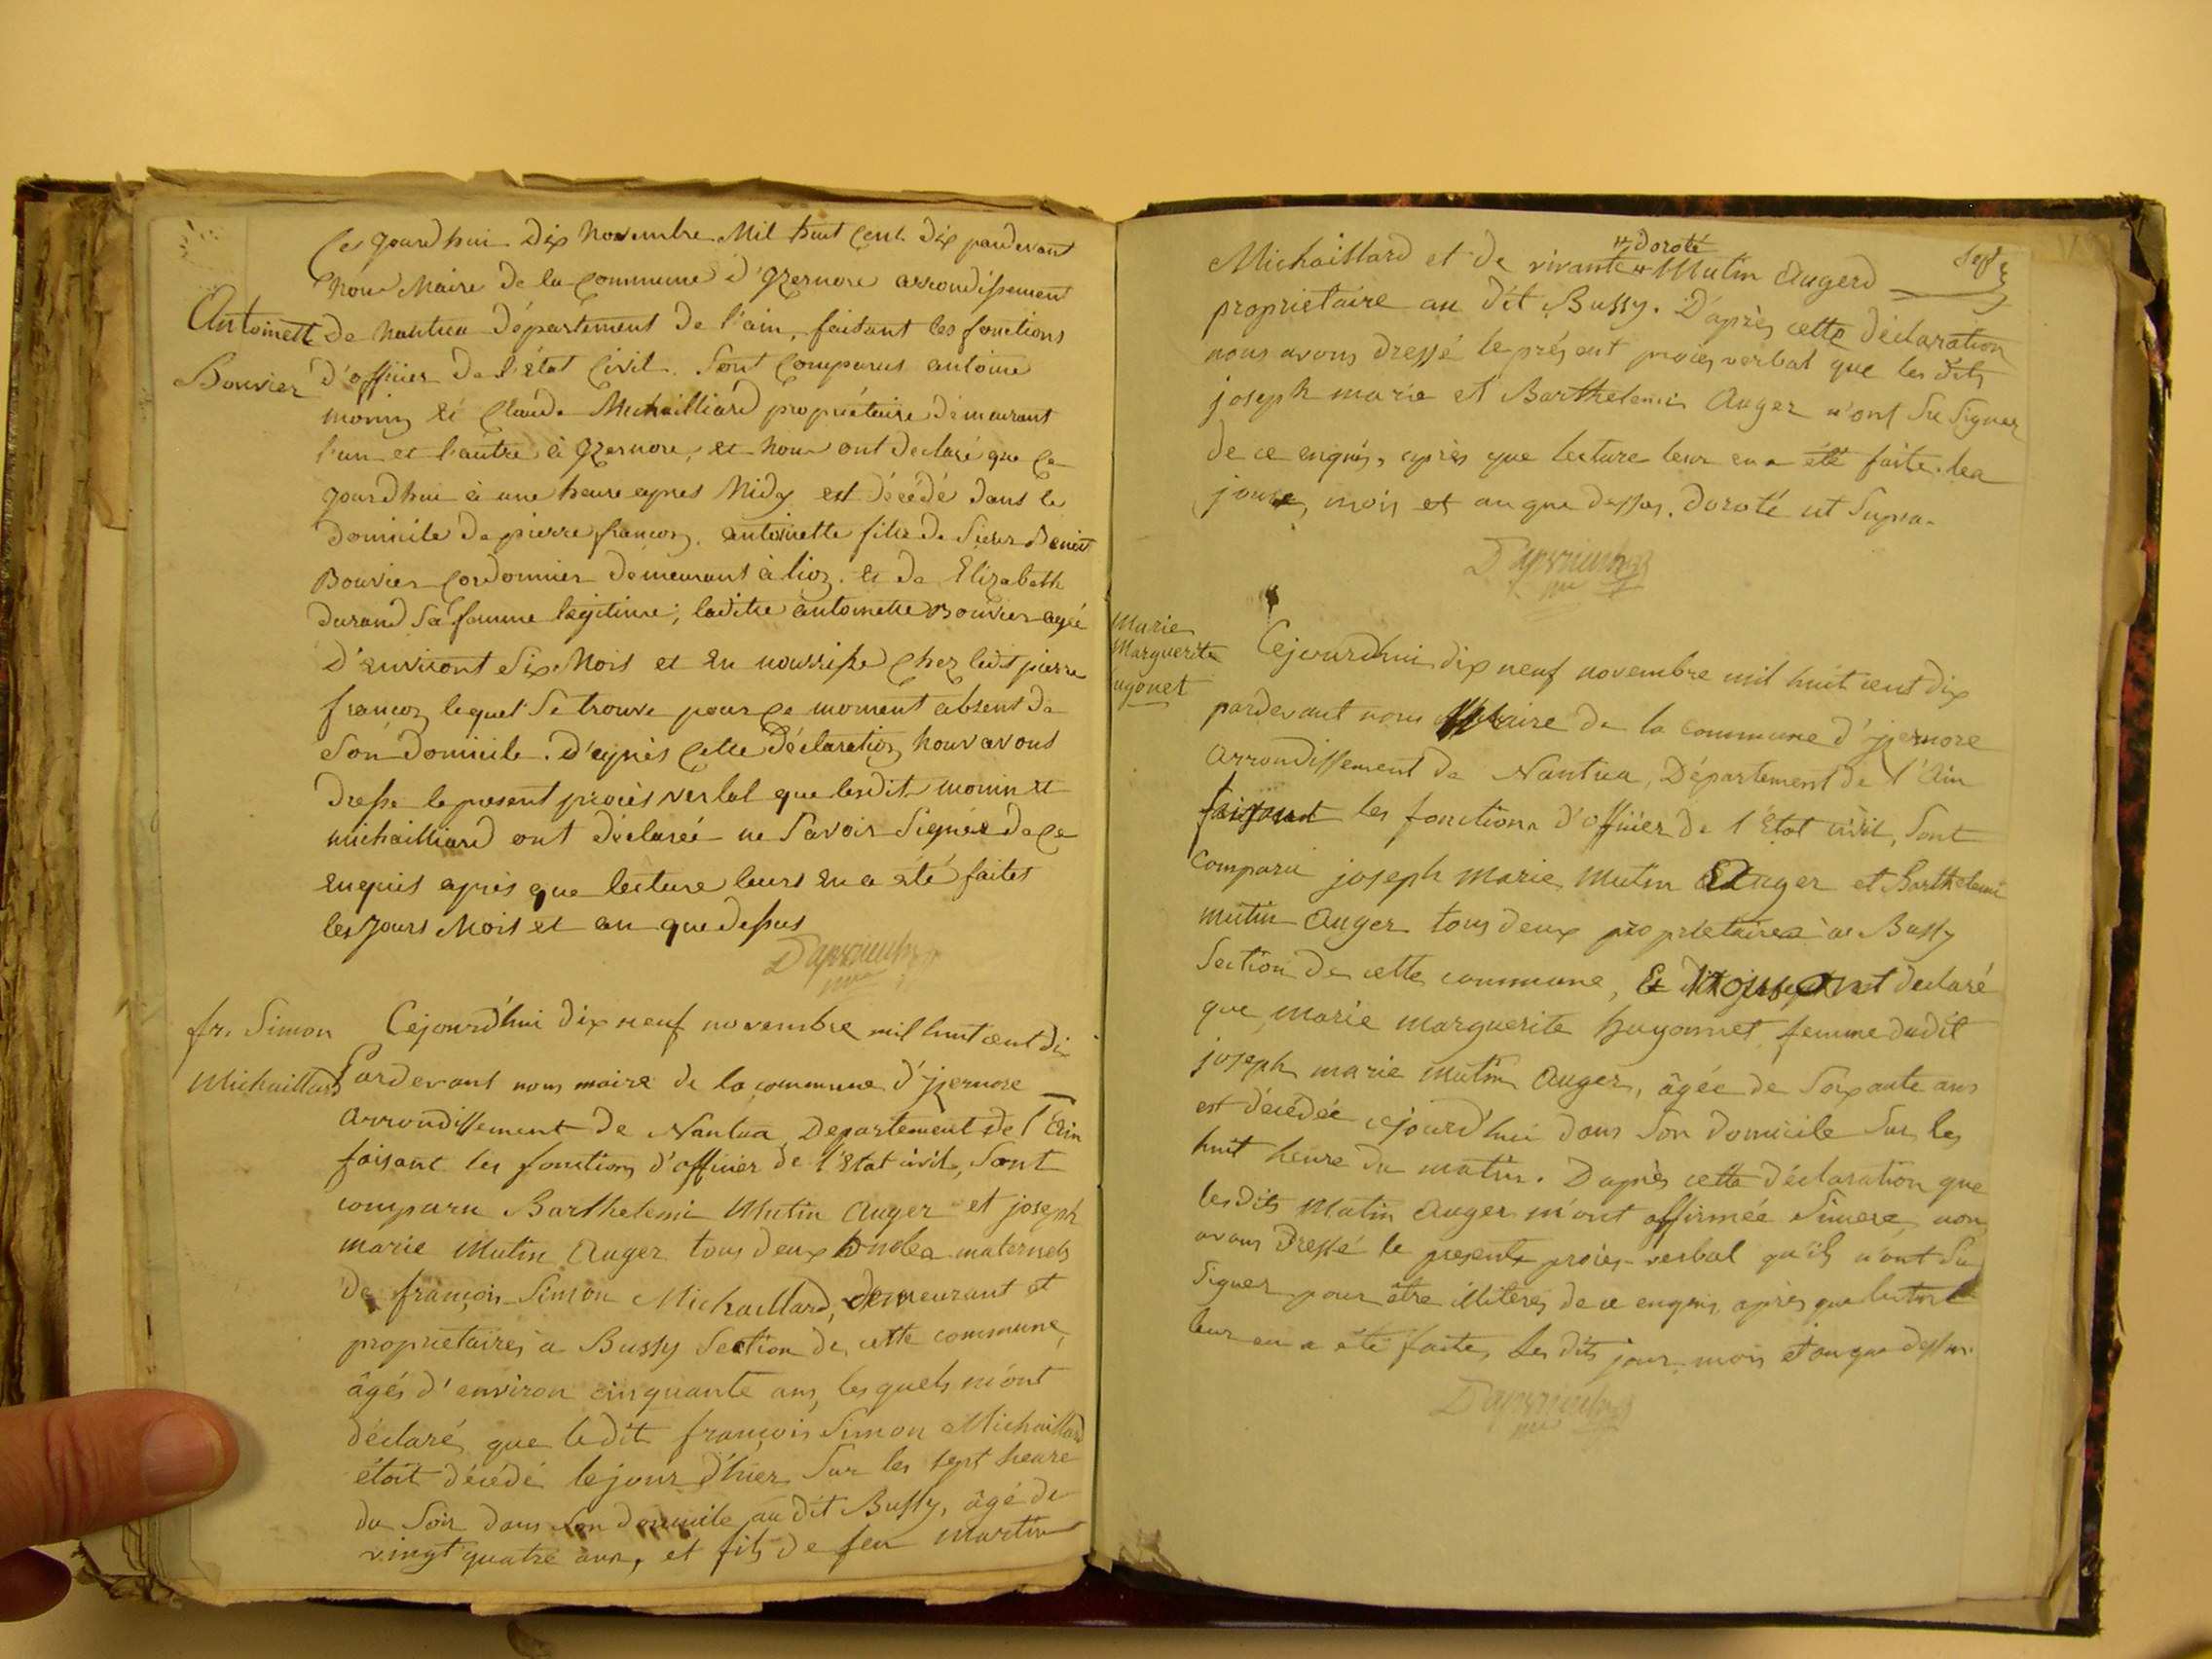 Ces Jourd'hui Dix Novembre Mil huit Cent Dix pardevant
nous Maire De la Commune d'Yzernore arrondissement
Antoinette
De Nantua Département De l'ain, faisant les fonctions
Bouvier
d'officier De l'état Civil. Sont Comparus antoine
monin et Claude Michailliard propriétaire Demeurant
l'un et l'autre à Yzernore, et nous ont Declaré que Ce
Jourd'hui à une heure apres Midy est Décédé Dans le
Domicile De pierre françon, antoinette fille De Sieur Benoit
Bouvier Cordonnier Demeurant à lion. et De Elizabeth
durand Sa femme legitime; laditte antoinette Bouvier agée
D'environt Six Mois et en nourrisse Chez ledit pierre
françon lequel Se trouve pour Ce moment absent De
Son Domicile. D'après Cette Déclaration nous avons
Dressé le present procès verbal que lesdit monin et
michailliard ont déclareé ne Savoir Signée De Ce
enquis après que lecture leurs en a été faites
les Jours Mois et an que Dessus
fr. Simon
Michaillard
Cejourd'hui Dix neuf novembre mil huit cent Dix
Pardevant nous maire de la commune d'yzernore
Arrondissement De Nantua, Departement de l'Ain
faisant les fonctions d'officier de l'Etat civil, Sont
comparu Barthelemi Mutin Auger et joseph
marie Mutin Auger tous deux oncles maternels
De françois Simon Michaillard, demeurant et
proprietaires a Bussy Section de cette commune,
âgés d'environ cinquante ans, les quels m'ont
déclaré que le dit françois Simon Michaillard
étoit décédé le jour d'hier Sur les sept heure
du Soir dans son domicile au dit Bussy, âgé de
vingt quatre ans, et fils de feu Martin
Michaillard et de vivante Mutin Augerd
doroté
sept
proprietaire au dit Bussy. D'après cette déclaration
nous avons dressé le présent procès verbal que les dits
joseph marie et Barthelemi Auger n'ont Su Signer
de ce enquis, après que lecture leur en a été faite. les
jours, mois et an que dessus. doroté ut Supra.
Marie
Marguerite
ugonet
Cejourd'hui dix neuf novembre mil huit cent dix
pardevant nous Maire de la commune d'yzernore
Arrondissement de Nantua, Département de l'Ain
faisant les fonctions d'officier de l'Etat civil, Sont
Comparu joseph Marie Mutin Auger et Barthelemi
mutin Auger tous deux proprietaires à Bussy
Section de cette commune, declaré
que marie marguerite huyonnet femme dudit
joseph marie mutin Auger, âgée de Soixante ans
est décédée cejourd'hui dans Son domicile Sur les
huit heure du matin. D'après cette déclaration que
lesdits Mutin Auger m'ont affirmée Sincere, nous
avons Dressé le present procès-verbal qu'ils n'ont Su
Signer pour être illiteres de ce enquis, après que lecture
leur en a été faite, les dits jour, mois et an que dessus.